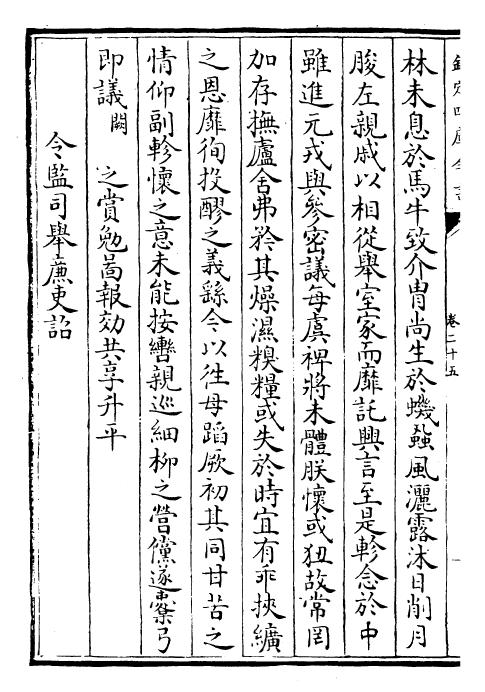 欽定四庫全書
卷二十五
林未息於馬牛致介胄尚生於蟣蝨風灑露沐日削月
朘左親戚以相從舉室家而靡託興言至是軫念於中
雖進元戎與參密議每虞裨將未體朕懷或狃故常罔
加存撫廬舍弗矜其燥濕糗糧或失於時宜有乖挾纊
之恩靡徇投醪之義繇今以往毋蹈厥初其同甘苦之
情仰副軫懷之意未能按轡親巡細柳之營儻遂櫜弓
即議闕之賞勉啚報効共享升平
令監司舉亷吏詔